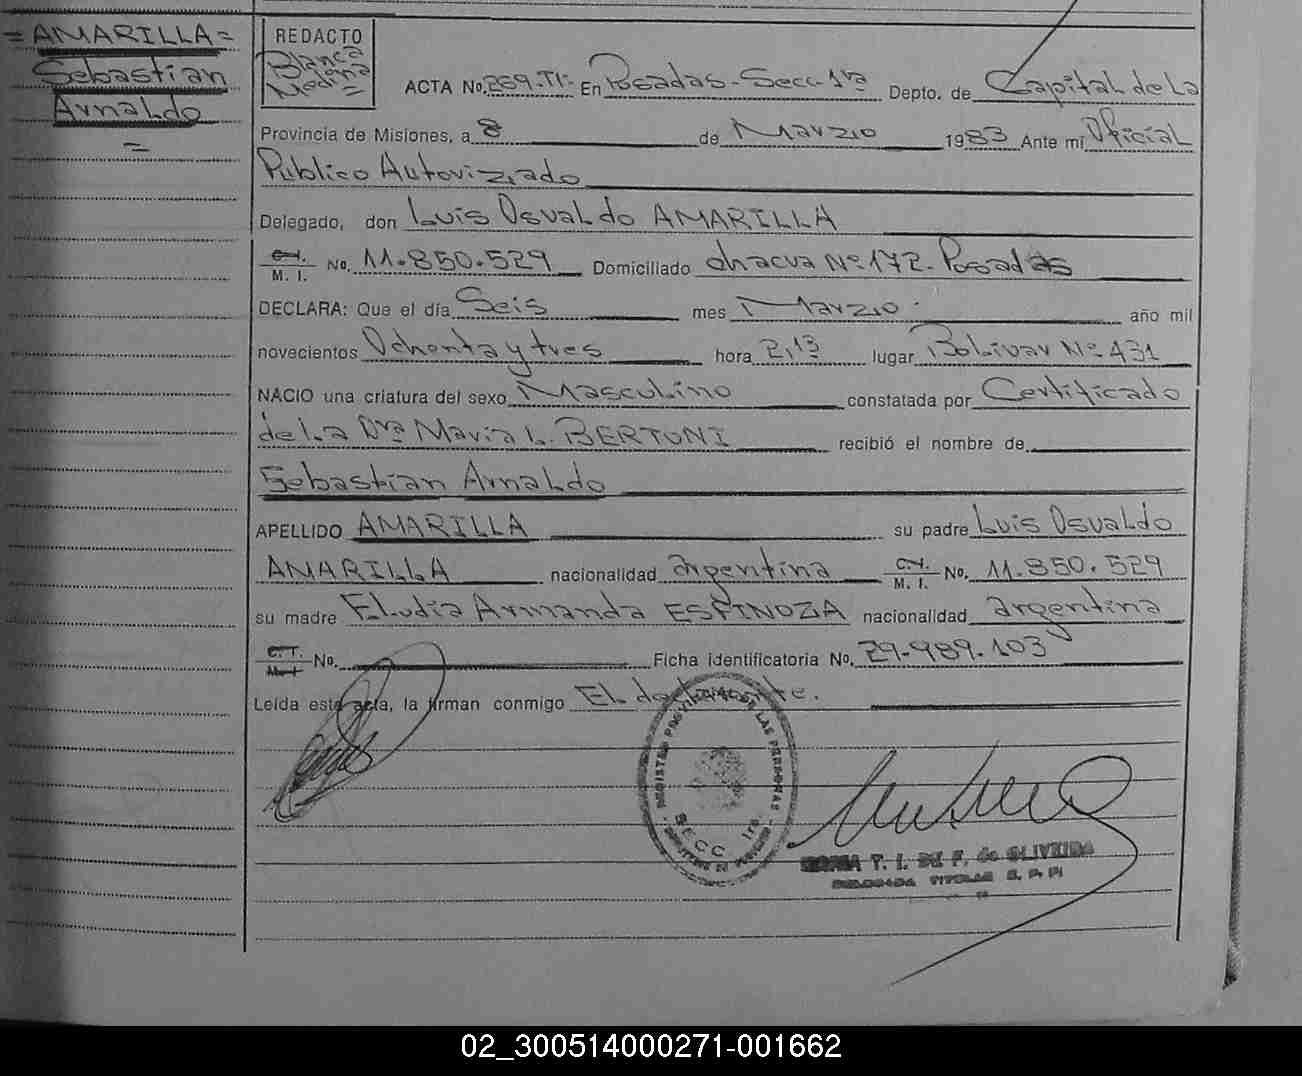 =AMARILLA=
Sebastian
Arnaldo
=
REDACTO
Blanca
Medina
=
ACTA No. 269.TI- En Posadas-Secc-1ra Depto. de Capital de la
Provincia de Misiones, a 8 de Marzo 1983 Ante mi Oficial
Publico Autorizado
Delegado, don Luis Osvaldo AMARILLA
C.I. M. I. No. 11.850.529 Domiciliado chacra Nº 172-Posadas
DECLARA: Que el día Seis mes Marzo año mil
novecientos Ochenta y tres hora 2,13 lugar Bolivar Nº 431
NACIO una criatura del sexo Masculino constatada por Certificado
de la Dra Maria L. BERTONI recibió el nombre de
Sebastian Arnaldo
APELLIDO AMARILLA su padre Luis Osvaldo
AMARILLA nacionalidad argentina C.I. M. I. No. 11.850.529
su madre Eludia Armanda ESPINOZA nacionalidad argentina
C.I. M.I. No. Ficha identificatoria No. 29-989.103
Leída esta acta, la firman conmigo El declarante.
REGISTRO PROVINCIAL DE LAS PERSONAS
SECC 1ra.
T. I. DE F. de OLIVEIRA
DELEGADA TITULAR R. P. P.
02_300514000271-001662